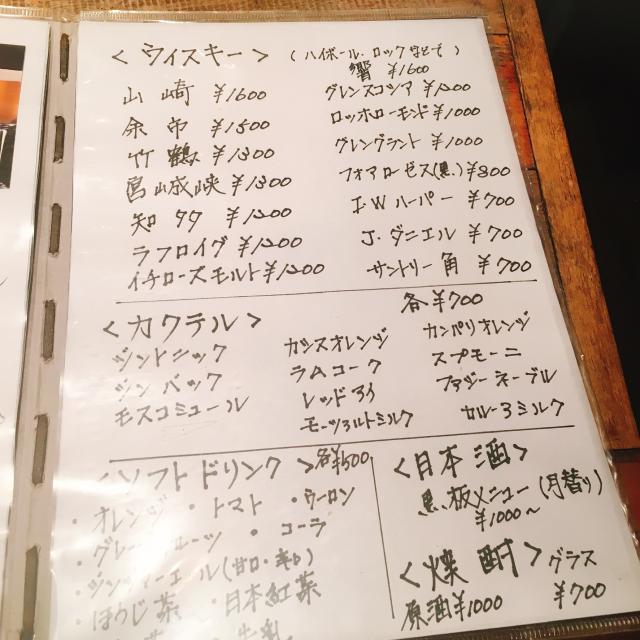 ＜ウィスキー＞
（ハイボール、ロックなどで）
山崎 ¥1600
余市 ¥1500
竹鶴 ¥1300
宮城峡 ¥1300
知多 ¥1200
ラフロイグ ¥1200
イチローズモルト ¥1200
響 ¥1600
グレンスコシア ¥1200
ロッホローモンド ¥1000
グレングラント ¥1000
フォアローゼス(黒) ¥800
I・Wハーパー ¥700
J・ダニエル ¥700
サントリー角 ¥700
＜カクテル＞ 各¥700
ジントニック
ジンバック
モスコミュール
カシスオレンジ
ラムコーク
レッドアイ
モーツァルトミルク
カンパリオレンジ
スプモーニ
ファジーネーブル
カルーアミルク
＜ソフトドリンク＞各¥500
・オレンジ ・トマト ・ウーロン
・グレープフルーツ ・コーラ
・ジンジャーエール(甘口・辛口)
・ほうじ茶 ・日本紅茶
牛乳
＜日本酒＞
黒板メニュー(月替り)
¥1000〜
＜焼酎＞グラス
¥700
原酒¥1000